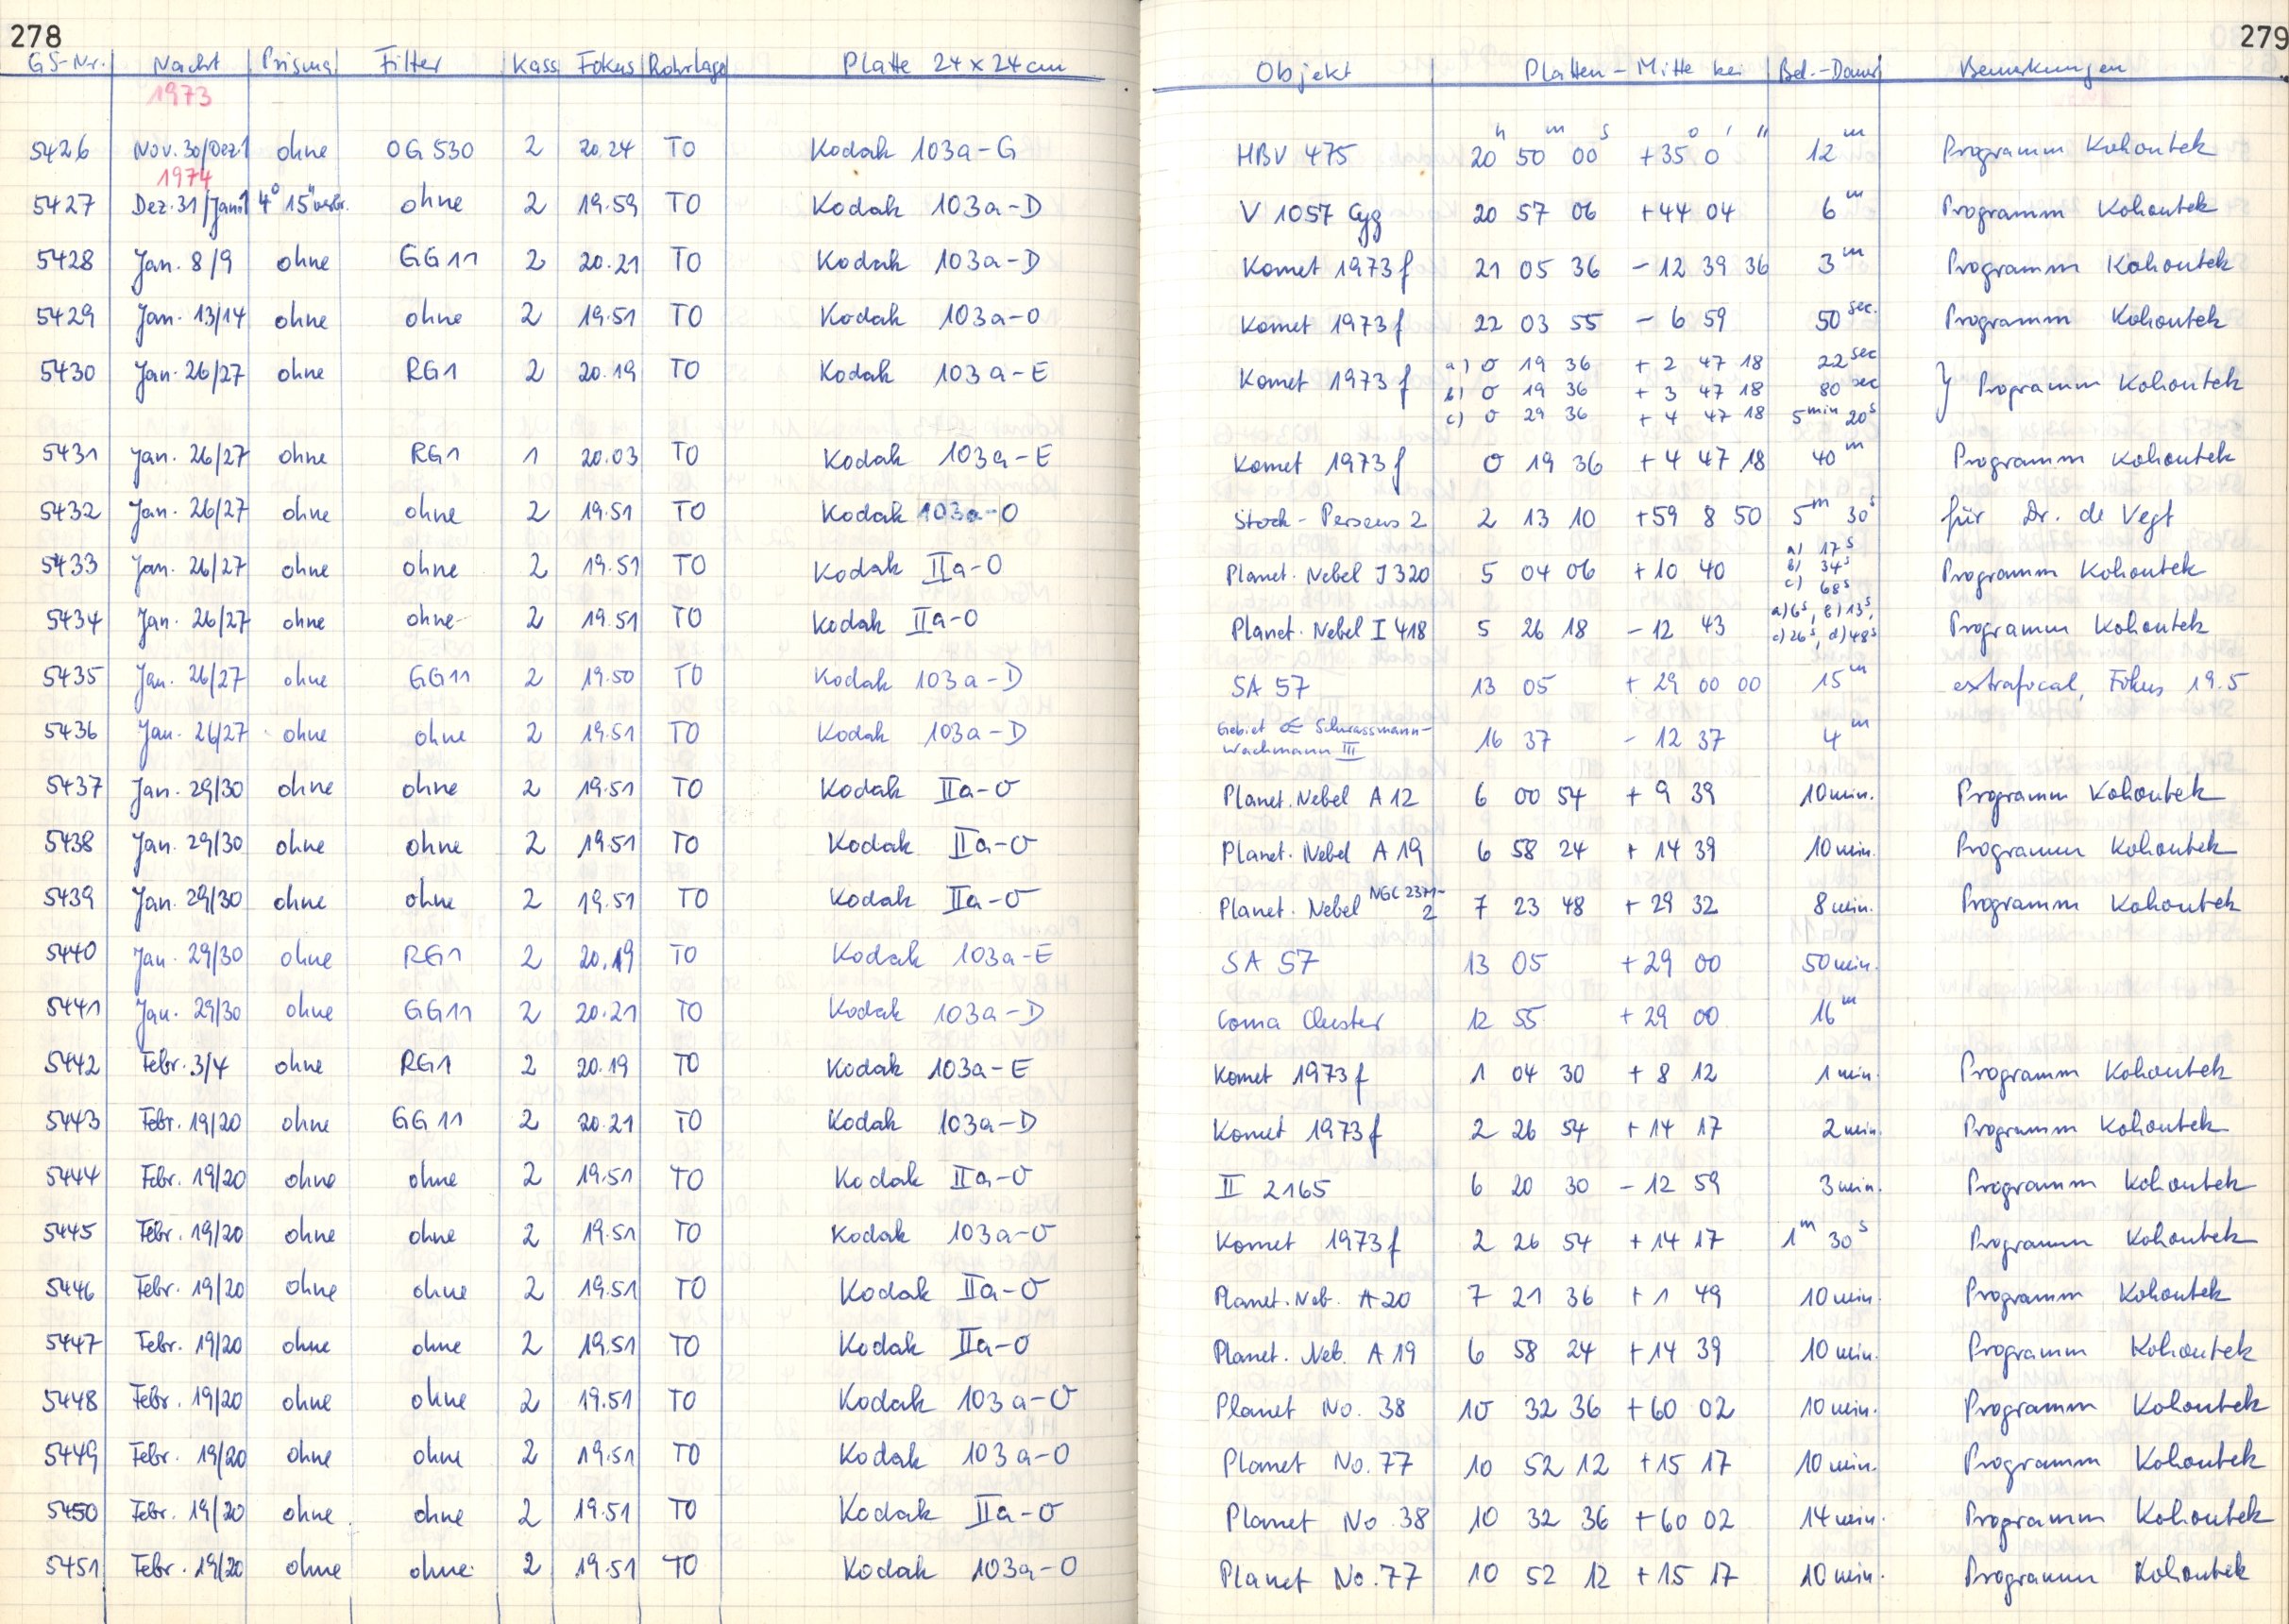 278
GS-Nr. Nacht Prisma Filter Kass Fokus Rohrlage Platte 24 x 24 cm
1973
5426 Nov. 30/Dez 1 ohne OG 530 2 20.24 TO Kodak 103a-G
1974
5427 Dez. 31/Jan 1 4° 15" ohne 2 19.59 TO Kodak 103a-D
5428 Jan. 8/9 ohne GG11 2 20.21 TO Kodak 103a-D
5429 Jan. 13/14 ohne ohne 2 19.51 TO Kodak 103a-O
5430 Jan. 26/27 ohne RG1 2 20.19 TO Kodak 103a-E
5431 Jan. 26/27 ohne RG1 1 20.03 TO Kodak 103a-E
5432 Jan. 26/27 ohne ohne 2 19.51 TO Kodak 103a-O
5433 Jan. 26/27 ohne ohne 2 19.51 TO Kodak IIa-O
5434 Jan. 26/27 ohne ohne 2 19.51 TO Kodak IIa-O
5435 Jan. 26/27 ohne GG11 2 19.50 TO Kodak 103a-D
5436 Jan. 26/27 ohne ohne 2 19.51 TO Kodak 103a-D
5437 Jan. 29/30 ohne ohne 2 19.51 TO Kodak IIa-O
5438 Jan. 29/30 ohne ohne 2 19.51 TO Kodak IIa-O
5439 Jan. 29/30 ohne ohne 2 19.51 TO Kodak IIa-O
5440 Jan. 29/30 ohne RG1 2 20.19 TO Kodak 103a-E
5441 Jan. 29/30 ohne GG11 2 20.21 TO Kodak 103a-D
5442 Febr. 3/4 ohne RG1 2 20.19 TO Kodak 103a-E
5443 Febr. 19/20 ohne GG11 2 20.21 TO Kodak 103a-D
5444 Febr. 19/20 ohne ohne 2 19.51 TO Kodak IIa-O
5445 Febr. 19/20 ohne ohne 2 19.51 TO Kodak 103a-O
5446 Febr. 19/20 ohne ohne 2 19.51 TO Kodak IIa-O
5447 Febr. 19/20 ohne ohne 2 19.51 TO Kodak IIa-O
5448 Febr. 19/20 ohne ohne 2 19.51 TO Kodak 103a-O
5449 Febr. 19/20 ohne ohne 2 19.51 TO Kodak 103a-O
5450 Febr. 19/20 ohne ohne 2 19.51 TO Kodak IIa-O
5451 Febr. 19/20 ohne ohne 2 19.51 TO Kodak 103a-O
279
Objekt Platten-Mitte bei Bel.-Dauer Bemerkungen
h m s ° ' "
HBV 475 20 50 00 +35 0 12m Programm Kohoutek
V 1057 Cyg 20 57 06 +44 04 6m Programm Kohoutek
Komet 1973f 21 05 36 -12 39 36 3m Programm Kohoutek
Komet 1973f 22 03 55 -6 59 50 sec. Programm Kohoutek
a) 0 19 36 +2 47 18 22 sec
Komet 1973f b) 0 19 36 +3 47 18 80 sec } Programm Kohoutek
c) 0 29 36 +4 47 18 5 min 20s
Komet 1973f 0 19 36 +4 47 18 40m Programm Kohoutek
Stock-Perseus 2 2 13 10 +59 8 50 5m 30s für Dr. de Vegt
a) 17s
Planet. Nebel J 320 5 04 06 +10 40 b) 34s Programm Kohoutek
c) 68s
a) 6s, b) 13s,
Planet. Nebel I 418 5 26 18 -12 43 c) 26s, d) 48s Programm Kohoutek
SA 57 13 05 +29 00 00 15m extrafocal, Fokus 19.5
Gebiet Schwassmann-
Wachmann III 16 37 -12 37 4m
Planet. Nebel A 12 6 00 54 +9 39 10 min. Programm Kohoutek
Planet. Nebel A 19 6 58 24 +14 39 10 min. Programm Kohoutek
Planet. Nebel NGC 2371-2 7 23 48 +29 32 8 min. Programm Kohoutek
SA 57 13 05 +29 00 50 min.
Coma Cluster 12 55 +29 00 16m
Komet 1973f 1 04 30 +8 12 1 min. Programm Kohoutek
Komet 1973f 2 26 54 +14 17 2 min. Programm Kohoutek
II 2165 6 20 30 -12 59 3 min. Programm Kohoutek
Komet 1973f 2 26 54 +14 17 1m 30s Programm Kohoutek
Planet. Neb. A 20 7 21 36 +1 49 10 min. Programm Kohoutek
Planet. Neb. A 19 6 58 24 +14 39 10 min. Programm Kohoutek
Planet No. 38 10 32 36 +60 02 10 min. Programm Kohoutek
Planet No. 77 10 52 12 +15 17 10 min. Programm Kohoutek
Planet No. 38 10 32 36 +60 02 14 min. Programm Kohoutek
Planet No. 77 10 52 12 +15 17 10 min. Programm Kohoutek